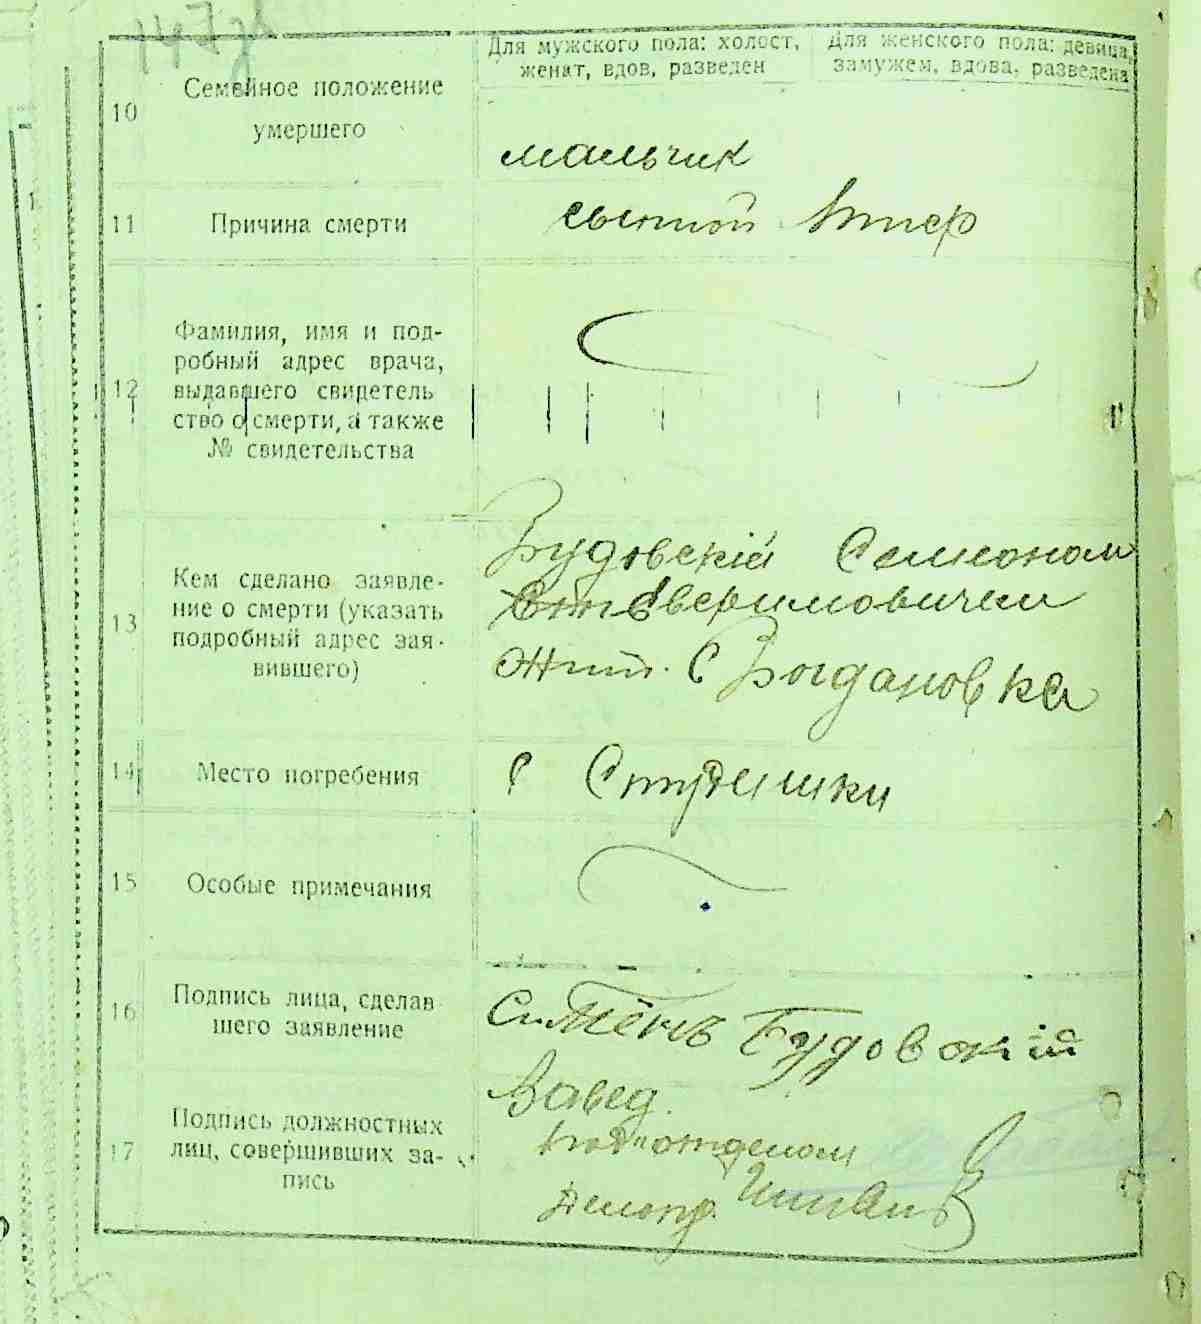 Для мужского пола: холост,
женат, вдов, разведен
Для женского пола: девица,
замужем, вдова, разведена
10
Семейное положение
умершего
мальчик
11
Причина смерти
сыпной
12
Фамилия, имя и под-
робный адрес врача,
выдавшего свидетель
ство о смерти, а также
№ свидетельства
13
Кем сделано заявле-
ние о смерти (указать
подробный адрес зая-
вившего)
Будовскій Семионом
Жит. с Богдановка
14
Место погребения
с
15
Особые примечания
16
Подпись лица, сделав
шего заявление
Будовский
17
Подпись должностных
лиц, совершивших за-
пись
Завед.
подотделом
Делопр.